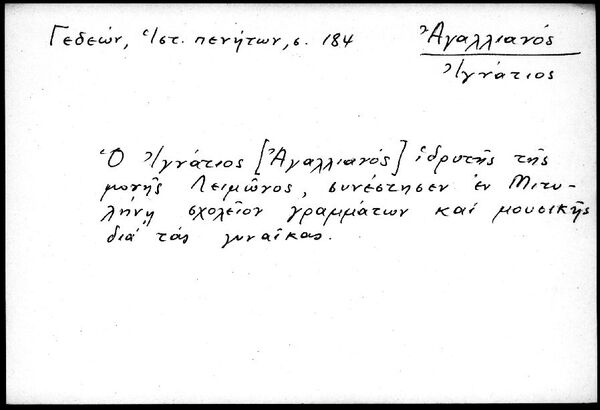 Γεδεών, Ἱστ. πενήτων, σ. 184
Ἀγαλλιανός
Ἰγνάτιος
Ὁ Ἰγνάτιος [Ἀγαλλιανός] ἱδρυτὴς τῆς
μονῆς Λειμῶνος, συνέστησεν ἐν Μιτυ-
λήνῃ σχολεῖον γραμμάτων καὶ μουσικῆς
διὰ τὰς γυναῖκας.